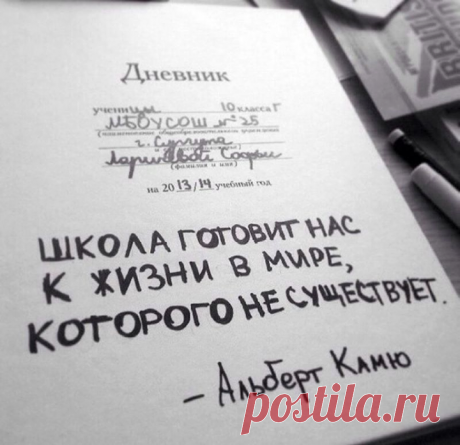 Дневник
учени цы 10 класса Г
МБОУСОШ №25
(наименование общеобразовательного учреждения)
г. Сургута
Софьи
(фамилия и имя)
на 2013/14 учебный год
ШКОЛА ГОТОВИТ НАС
К ЖИЗНИ В МИРЕ,
КОТОРОГО НЕ СУЩЕСТВУЕТ.
– Альберт Камю
postila.ru